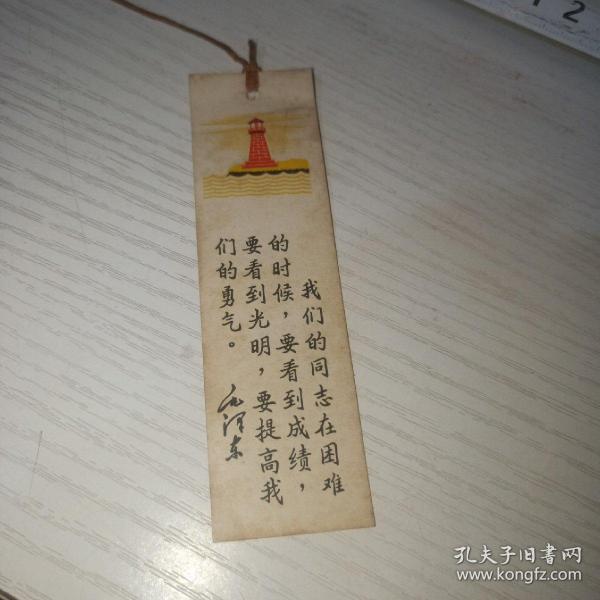 我们的同志在困难
的时候，要看到成绩，
要看到光明，要提高我
们的勇气。
毛泽东
12
孔夫子旧书网
www.kongfz.com